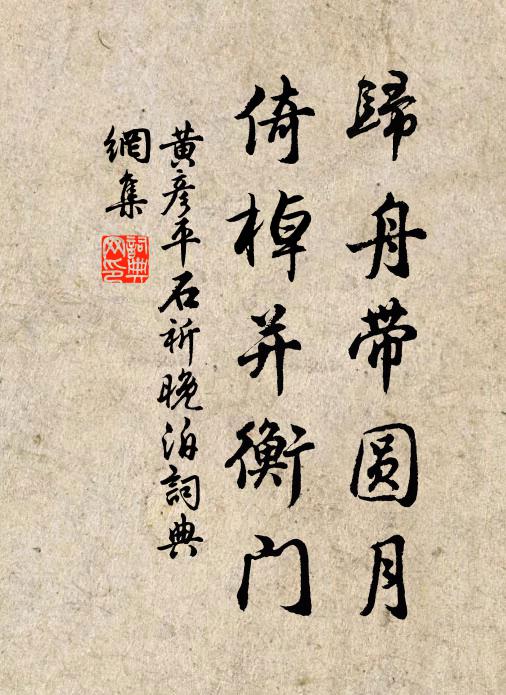 歸舟带圆月
倚棹并衡门
黄彦平石祈晚泊詞典
網集
詞典网印